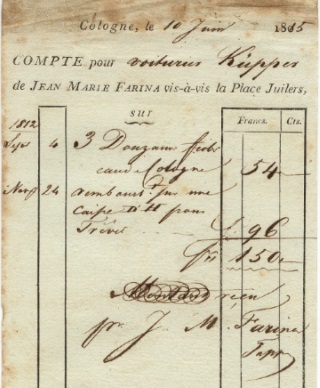 Cologne, le 10 Juin 1815
COMPTE pour voiturus Küpper
de JEAN MARIE FARINA vis-à-vis la Place Juliers,
sur
Francs. Cts.
1812
4 3 Douzaine
eau d Cologne 54 -
24 rembours sur une
caisse pour
Trèves 96
150 -
Montant reçu
pr J. M. Farina